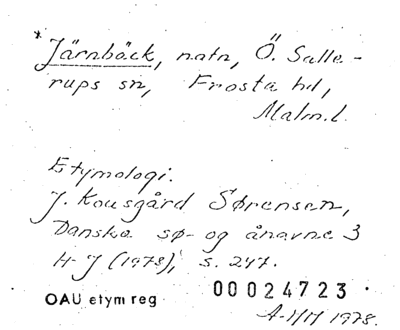 * Järnbäck, natn, Ö. Salle-
rups sn, Frosta hd,
Malm. l.
Etymologi.
J. Kousgård Sørensen,
Danske sø- og ånavne 3
H-J (1978), s. 247.
OAU etym reg 00024723
1978.